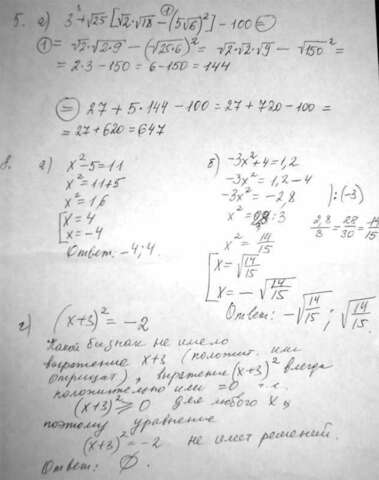 5. а) 3³+√25 [√2·√18 − (5√6)²] − 100 =
① = √2·√2·9 − (√25·6)² = √2·√2·√9 − √150² =
= 2·3 − 150 = 6 − 150 = 144
= 27 + 5·144 − 100 = 27 + 720 − 100 =
= 27 + 620 = 647
8. а) x² − 5 = 11
x² = 11+5
x² = 16
[x = 4
x = −4
Ответ: −4; 4.
б) −3x² + 4 = 1,2
−3x² = 1,2 − 4
−3x² = −2,8 ) : (−3)
x² = 2,8 : 3 2,8/3 = 28/30 = 14/15
x² = 14/15
[x = √14/15
x = − √14/15
Ответ: −√14/15 ; √14/15.
г) (x+3)² = −2
Какой бы знак не имело
выражение x+3 (положит. или
отрицат), выражение (x+3)² всегда
положительно или =0
(x+3)² ≥ 0 для любого x,
поэтому уравнение
(x+3)² = −2 не имеет решений.
Ответ: ∅.